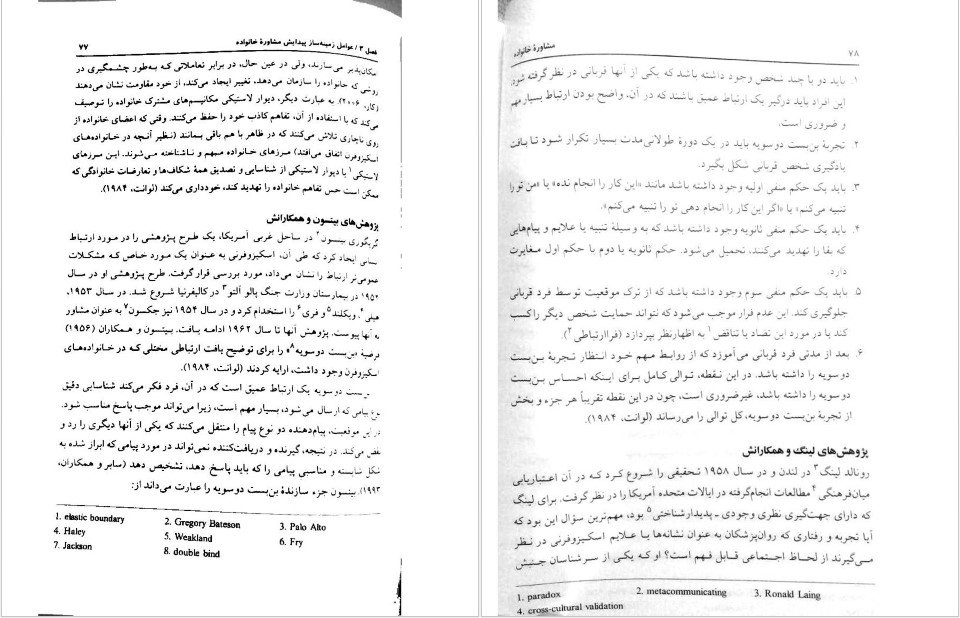 فصل ۳ / عوامل زمینه‌ساز پیدایش مشاورهٔ خانواده ۷۷
مکان‌پذیر می‌سازند، ولی در عین حال، در برابر تعاملاتی که به‌طور چشمگیری در
روشی که خانواده را سازمان می‌دهد، تغییر ایجاد می‌کند، از خود مقاومت نشان می‌دهند
۲۰۰۶). به عبارت دیگر، دیوار لاستیکی مکانیسم‌های مشترک خانواده را توصیف
می‌کند که با استفاده از آن، تفاهم کاذب خود را حفظ می‌کنند. وقتی که اعضای خانواده از
روی ناچاری تلاش می‌کنند که در ظاهر با هم باقی بمانند (نظیر آنچه در خانواده‌های
اسکیزوفرن اتفاق می‌افتد) مرزهای خانواده مبهم و ناشناخته می‌شوند. این مرزهای
لاستیکی۱ یا دیوار لاستیکی از شناسایی و تصدیق همهٔ شکاف‌ها و تعارضات خانوادگی که
ممکن است حس تفاهم خانواده را تهدید کند، خودداری می‌کند (لوانت، ۱۹۸۴).
پژوهش‌های بیتسون و همکارانش
گریگوری بیتسون۲ در ساحل غربی آمریکا، یک طرح پژوهشی را در مورد ارتباط
ایجاد کرد که طی آن، اسکیزوفرنی به عنوان یک مورد خاص که مشکلات
عمومی‌تر ارتباط را نشان می‌داد، مورد بررسی قرار گرفت. طرح پژوهشی او در سال
۱۹۵۲ در بیمارستان وزارت جنگ پالو آلتو۳ در کالیفرنیا شروع شد. در سال ۱۹۵۳،
هیلی۴، ویکلند۵ و فری۶ را استخدام کرد و در سال ۱۹۵۴ نیز جکسون۷ به عنوان مشاور
به آنها پیوست. پژوهش آنها تا سال ۱۹۶۲ ادامه یافت. بیتسون و همکاران (۱۹۵۶)
فرضیهٔ «بن‌بست دوسویه۸» را برای توضیح بافت ارتباطی مختلی که در خانواده‌های
اسکیزوفرن وجود داشت، ارایه کردند (لوانت، ۱۹۸۴).
بن‌بست دوسویه یک ارتباط عمیق است که در آن، فرد فکر می‌کند شناسایی دقیق
نوع پیامی که ارسال می‌شود، بسیار مهم است، زیرا می‌تواند موجب پاسخ مناسب شود.
در این موقعیت، پیام‌دهنده دو نوع پیام را منتقل می‌کند که یکی از آنها دیگری را رد و
نقض می‌کند. در نتیجه، گیرنده و دریافت‌کننده نمی‌تواند در مورد پیامی که ابراز شده به
شکل شایسته و مناسبی پیامی را که باید پاسخ دهد، تشخیص دهد (سابر و همکاران،
۱۹۹۳). بیتسون جزء سازندهٔ بن‌بست دوسویه را عبارت می‌داند از:
1. elastic boundary 2. Gregory Bateson 3. Palo Alto
4. Haley 5. Weakland 6. Fry
7. Jackson 8. double bind
۷۸ مشاورهٔ خانواده
۱. باید دو یا چند شخص وجود داشته باشد که یکی از آنها قربانی در نظر گرفته شود.
این افراد باید درگیر یک ارتباط عمیق باشند که در آن، واضح بودن ارتباط بسیار مهم
و ضروری است.
۲. تجربهٔ بن‌بست دوسویه باید در یک دورهٔ طولانی‌مدت بسیار تکرار شود تا بافت
یادگیری شخص قربانی شکل بگیرد.
۳. باید یک حکم منفی اولیه وجود داشته باشد مانند «این کار را انجام نده» یا «من تو را
تنبیه می‌کنم» یا «اگر این کار را انجام دهی تو را تنبیه می‌کنم».
۴. باید یک حکم منفی ثانویه وجود داشته باشد که به وسیلهٔ تنبیه یا علایم و پیام‌هایی
که بقا را تهدید می‌کنند، تحمیل می‌شود. حکم ثانویه یا دوم با حکم اول مغایرت
دارد.
۵. باید یک حکم منفی سوم وجود داشته باشد که از ترک موقعیت توسط فرد قربانی
جلوگیری کند. این عدم فرار موجب می‌شود که نتواند حمایت شخص دیگر را کسب
کند یا در مورد این تضاد یا تناقض۱ به اظهارنظر بپردازد (فراارتباطی۲)
۶. بعد از مدتی فرد قربانی می‌آموزد که از روابط مهم خود انتظار تجربهٔ بن‌بست
دوسویه را داشته باشد. در این نقطه، توالی کامل برای اینکه احساس بن‌بست
دوسویه را داشته باشد، غیرضروری است، چون در این نقطه تقریباً هر جزء و بخش
از تجربهٔ بن‌بست دوسویه، کل توالی را می‌رساند (لوانت، ۱۹۸۴).
پژوهش‌های لینگ و همکارانش
رونالد لینگ۳ در لندن و در سال ۱۹۵۸ تحقیقی را شروع کرد که در آن اعتباریابی
میان‌فرهنگی۴ مطالعات انجام‌گرفته در ایالات متحده آمریکا را در نظر گرفت. برای لینگ
که دارای جهت‌گیری نظری وجودی ـ پدیدارشناختی۵ بود، مهم‌ترین سؤال این بود که
آیا تجربه و رفتاری که روان‌پزشکان به عنوان نشانه‌ها یا علایم اسکیزوفرنی در نظر
می‌گیرند از لحاظ اجتماعی قابل فهم است؟ او که یکی از سرشناسان جنبش
1. paradox 2. metacommunicating 3. Ronald Laing
4. cross-cultural validation